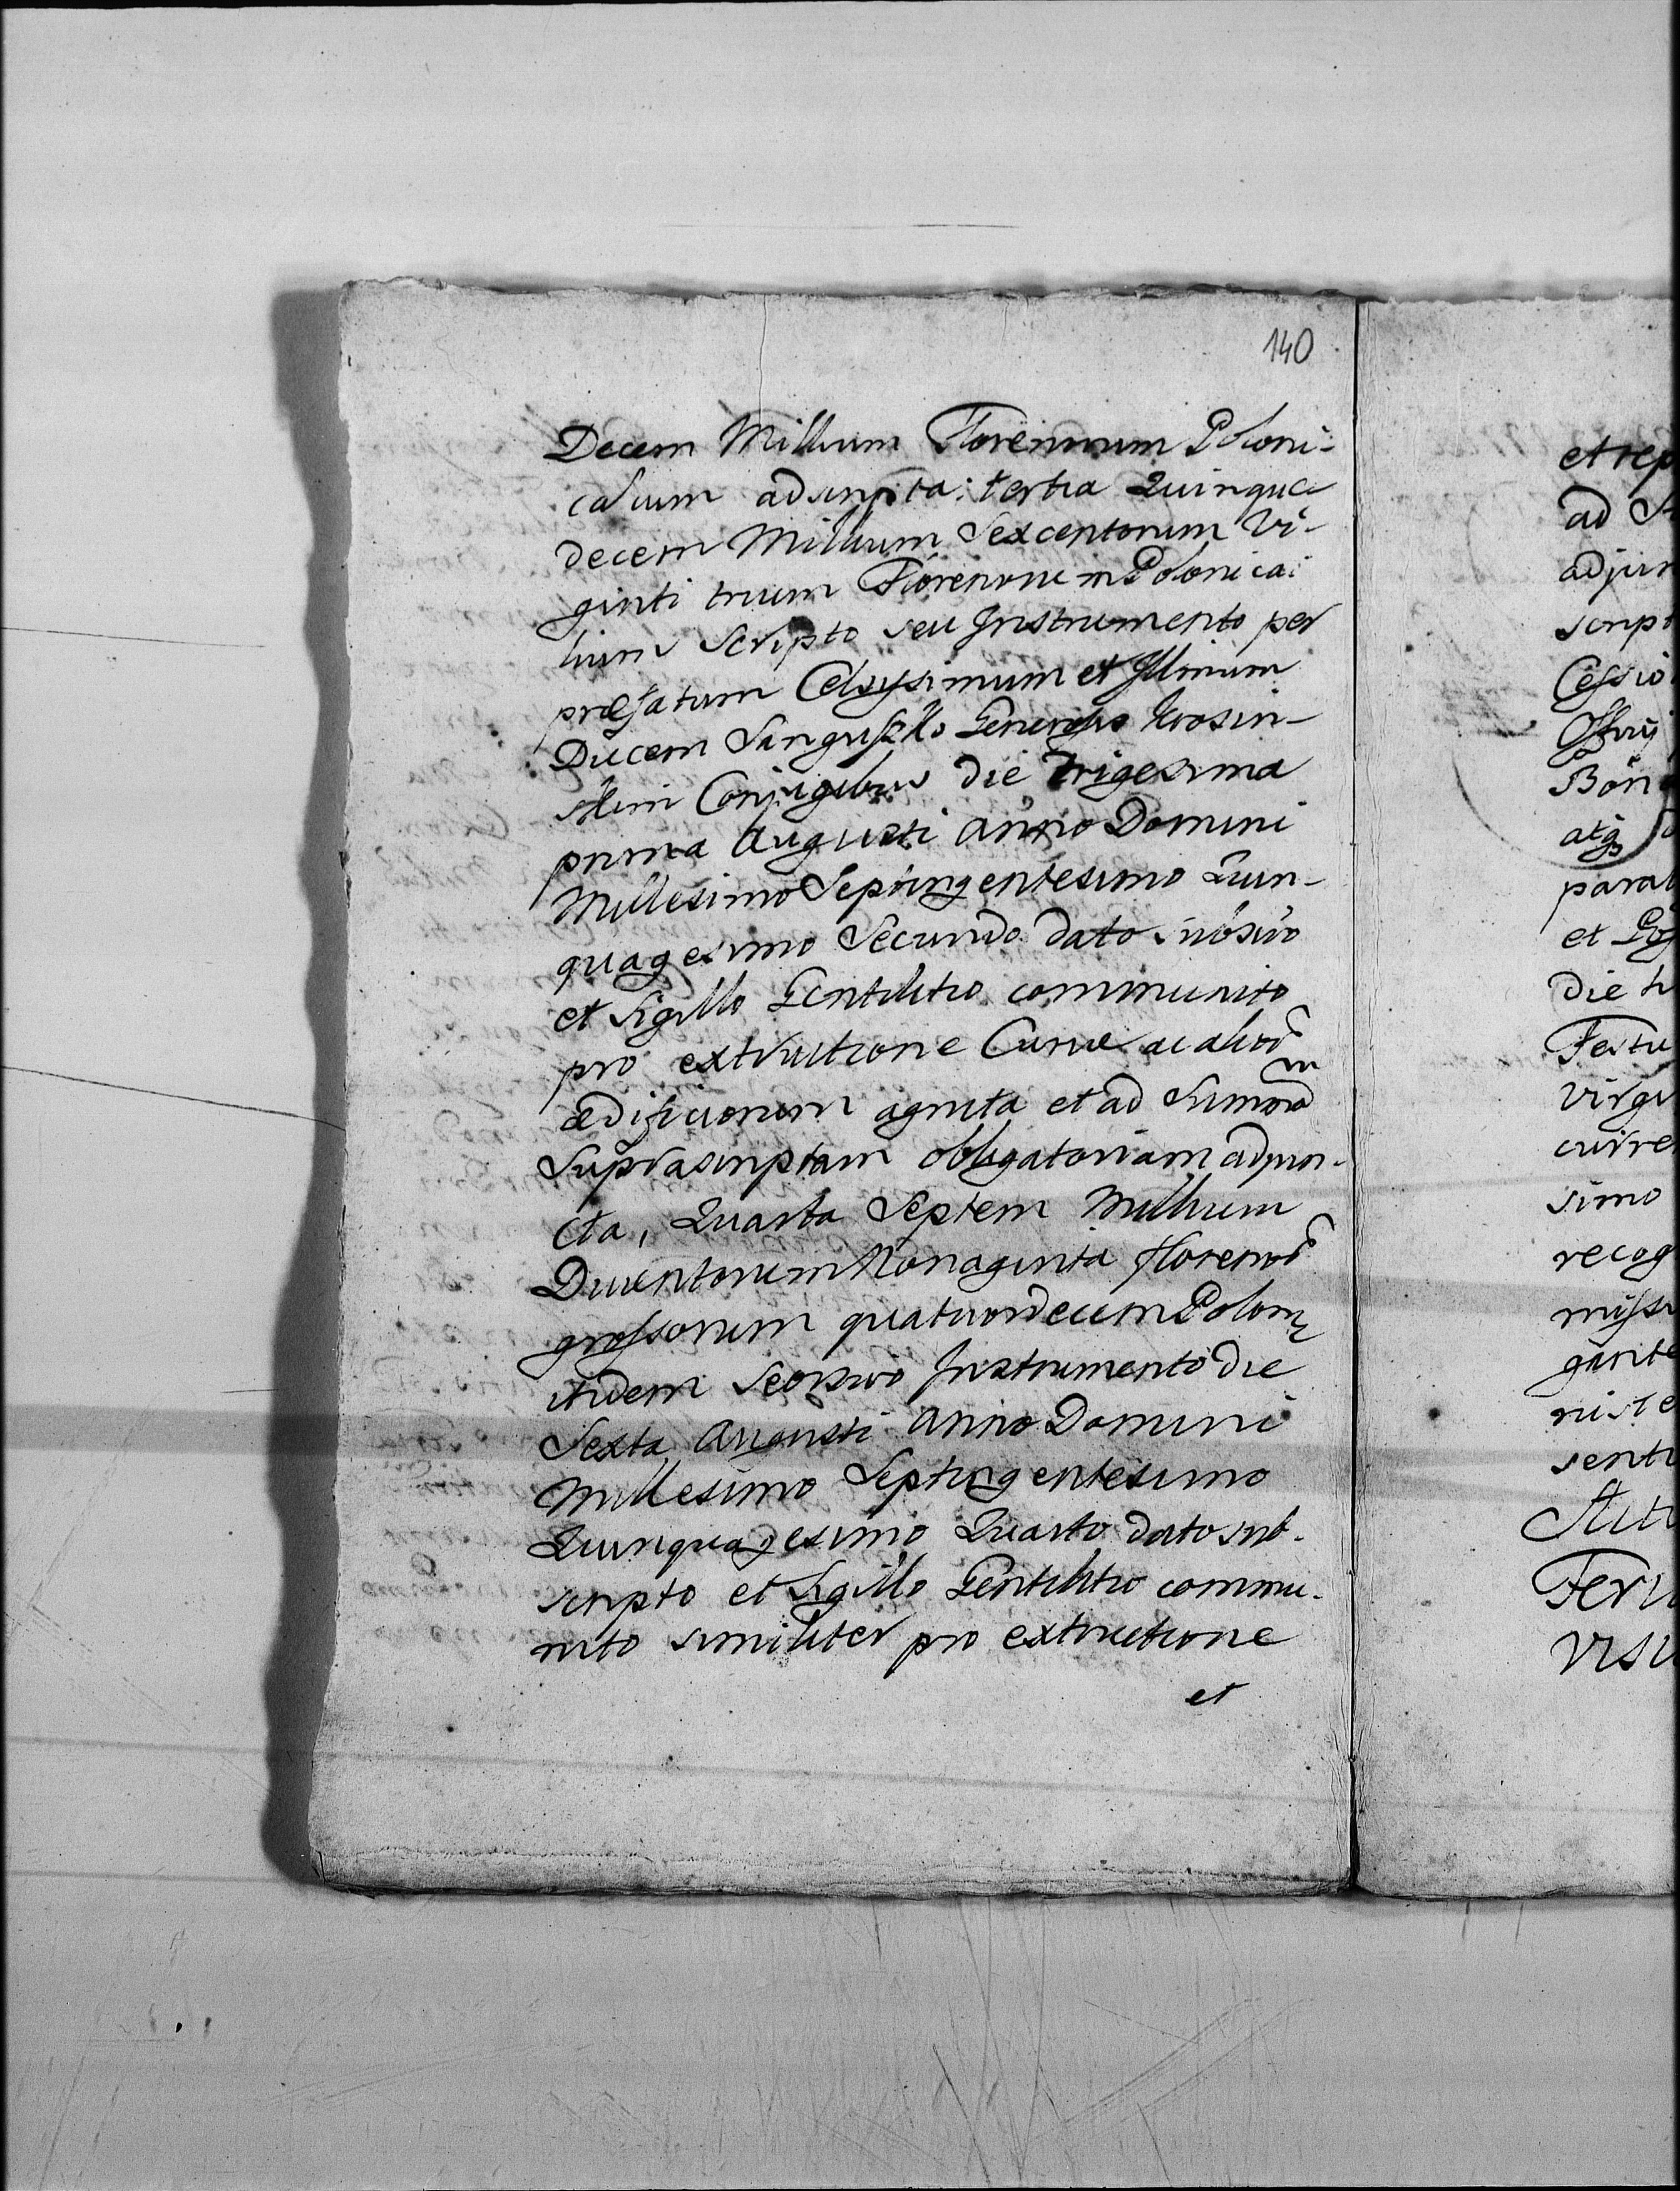 140
Decem Millium Florenorum Poloni-
calium adscripta: tertia Quinque
decem Millium Sexcentorum Vi-
ginti trium Florenorum Polonica:
lium Scripto seu Instrumento per
præfatum Celsyssimum et Illmum
Ducem Sanguszko Generosis
Conjugibus die trigesima
prima Augusti anno Domini
Millesimo Septingentesimo Quin-
quagesimo Secundo dato
et Sigillo Gentilitio communito
pro extructione Curiæ ac aliorũ
ædificiorum agnita et ad Summam
Suprascriptam obligatoriam adjun-
cta, Quarta Septem Millium
Ducentorum Nonaginta florenorũ
grossorum quatuordecem Polon
itidem Seorsivo Instrumento die
Sexta Augusti anno Domini
Millesimo Septingentesimo
Quinquagesimo Quarto dato sub-
scripto et Sigillo Gentilitio commu-
nito similiter pro extructione
et
et rep
ad
adjun
script
Cessio
Bon
atq
et
die
Festu
virgi
curre
simo
recog
missi
gante
niste
senti